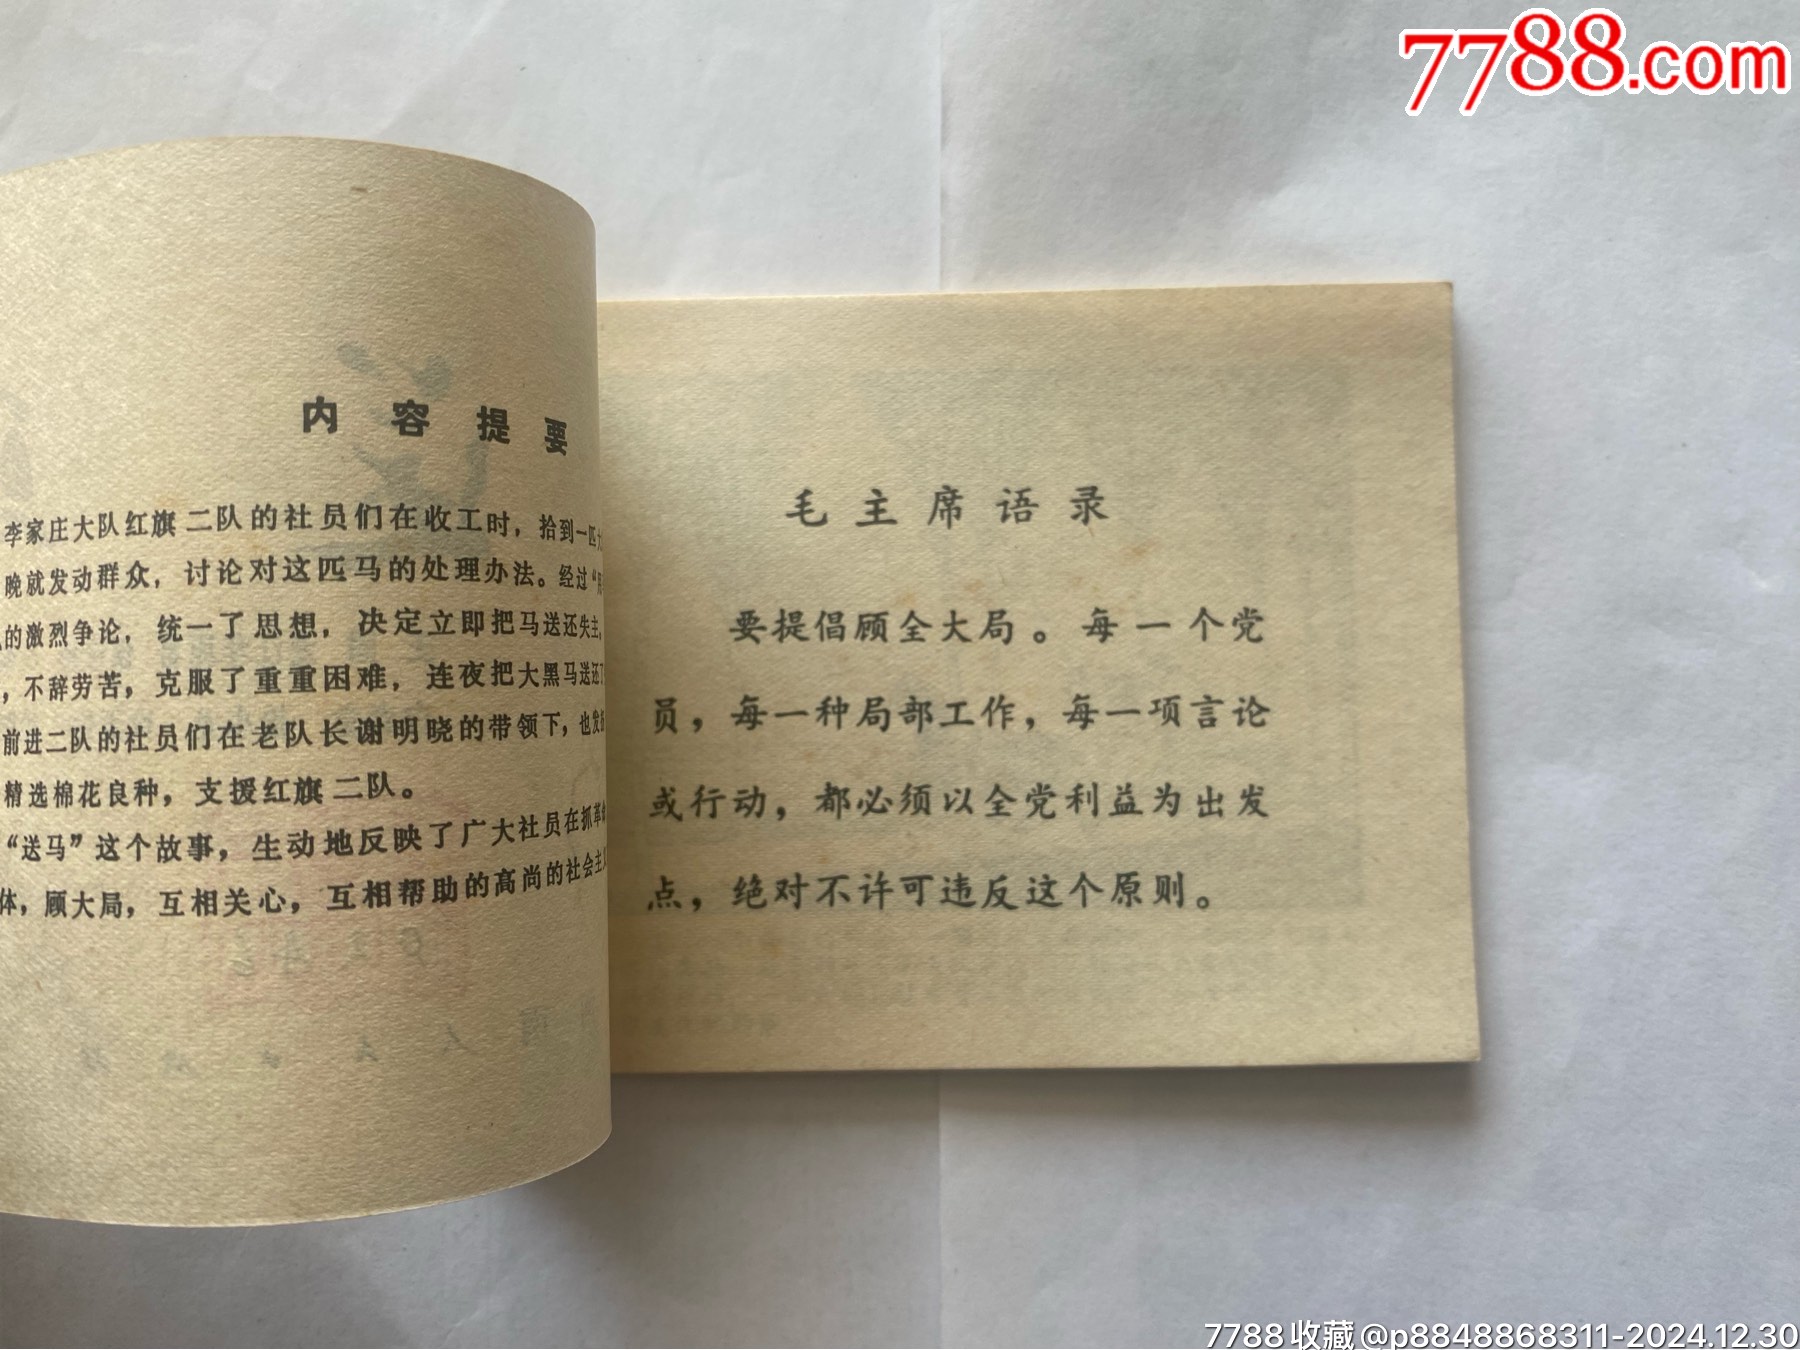 7788.com
内容提要
李家庄大队红旗二队的社员们在收工时，拾到一匹
晚就发动群众，讨论对这匹马的处理办法。经过“
的激烈争论，统一了思想，决定立即把马送还失主，
，不辞劳苦，克服了重重困难，连夜把大黑马送还了
前进二队的社员们在老队长谢明晓的带领下，也发
精选棉花良种，支援红旗二队。
“送马”这个故事，生动地反映了广大社员在抓革
体，顾大局，互相关心，互相帮助的高尚的社会主
毛主席语录
要提倡顾全大局。每一个党
员，每一种局部工作，每一项言论
或行动，都必须以全党利益为出发
点，绝对不许可违反这个原则。
7788收藏@p8848868311-2024.12.30